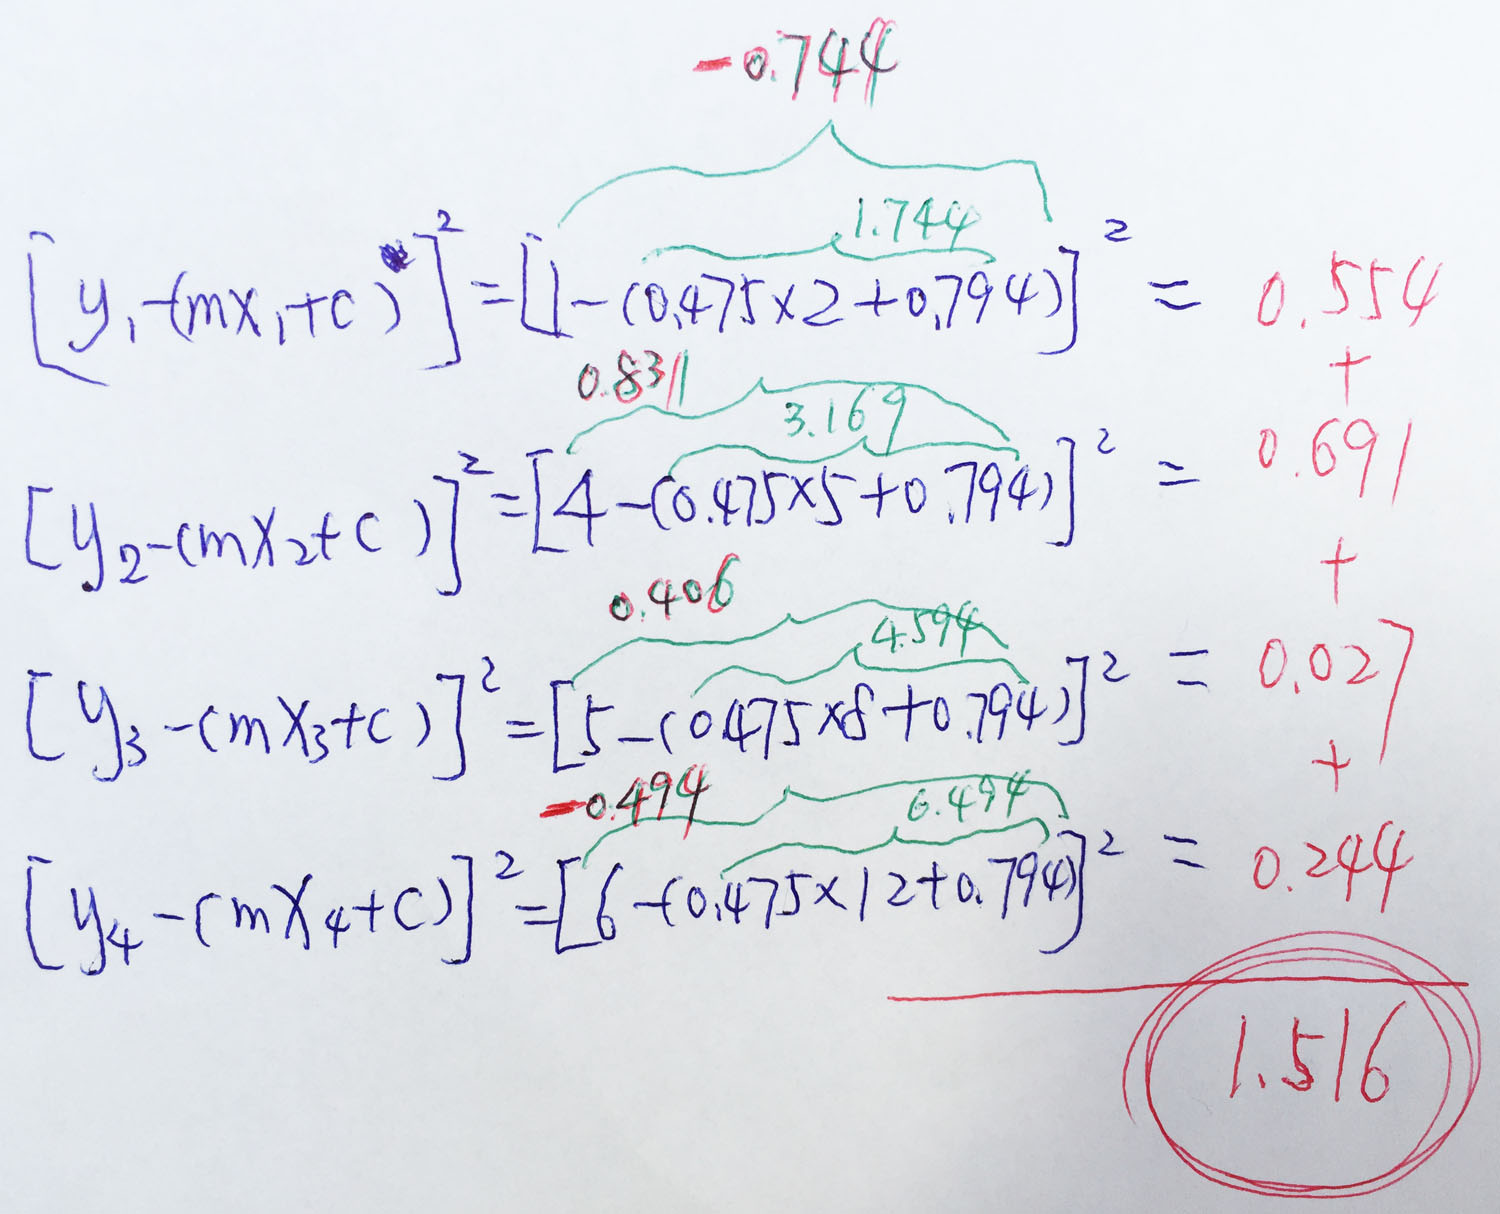 -0.744
1.744
[y₁-(mx₁+c)]² = [1-(0.475×2+0.794)]² = 0.554
+
0.831
3.169
[y₂-(mx₂+c)]² = [4-(0.475×5+0.794)]² = 0.691
+
0.406
4.594
[y₃-(mx₃+c)]² = [5-(0.475×8+0.794)]² = 0.027
+
-0.494
6.494
[y₄-(mx₄+c)]² = [6-(0.475×12+0.794)]² = 0.244
1.516